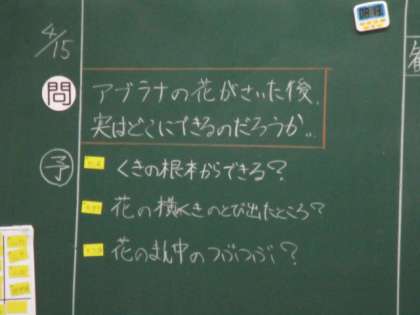 4/15
問
アブラナの花がさいた後、
実はどこにできるのだろうか。
予
くきの根本からできる?
花の横くきのとび出たところ?
花のまん中のつぶつぶ!?